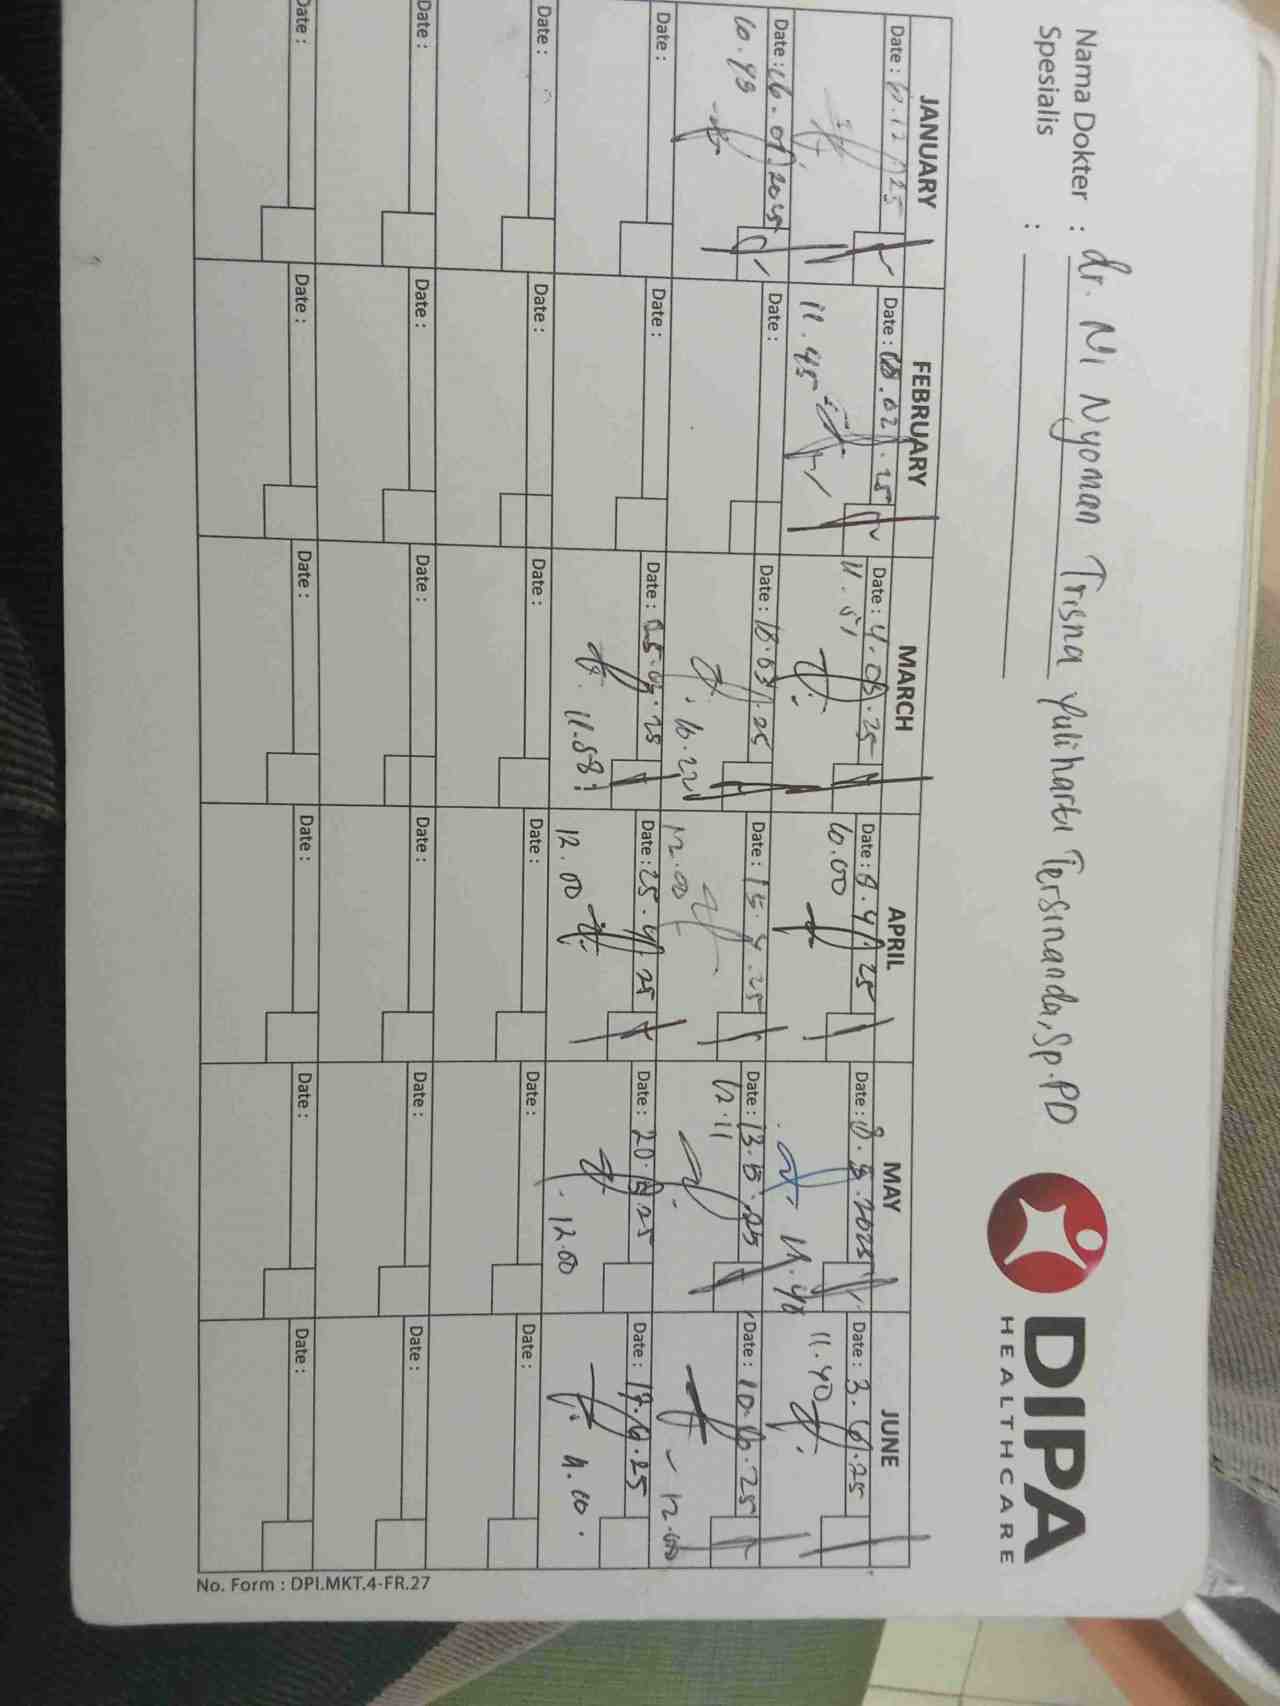 Nama Dokter : dr. Ni Nyoman Trisna Yuliharti Tersinanda, Sp.PD
Spesialis :
DIPA
HEALTHCARE
JANUARY FEBRUARY MARCH APRIL MAY JUNE
Date : Date : .02.25 Date : 4.03.25 Date : 8.4.25 Date : 8.5.2025 Date : 3.6.25
11.45 11.51 10.00 11.40
Date : 16.01.2025 Date : Date : 18.03.25 Date : 15.4.25 Date : 13.5.25 Date : 10.6.25
10.49 10.22 12.00 12.11 12.00
Date : Date : Date : 25.03.25 Date : 25.4.25 Date : 20.5.25 Date : 17.6.25
11.58 12.00 12.00
Date : Date : Date : Date : Date : Date :
Date : Date : Date : Date : Date : Date :
Date : Date : Date : Date : Date : Date :
No. Form : DPI.MKT.4-FR.27